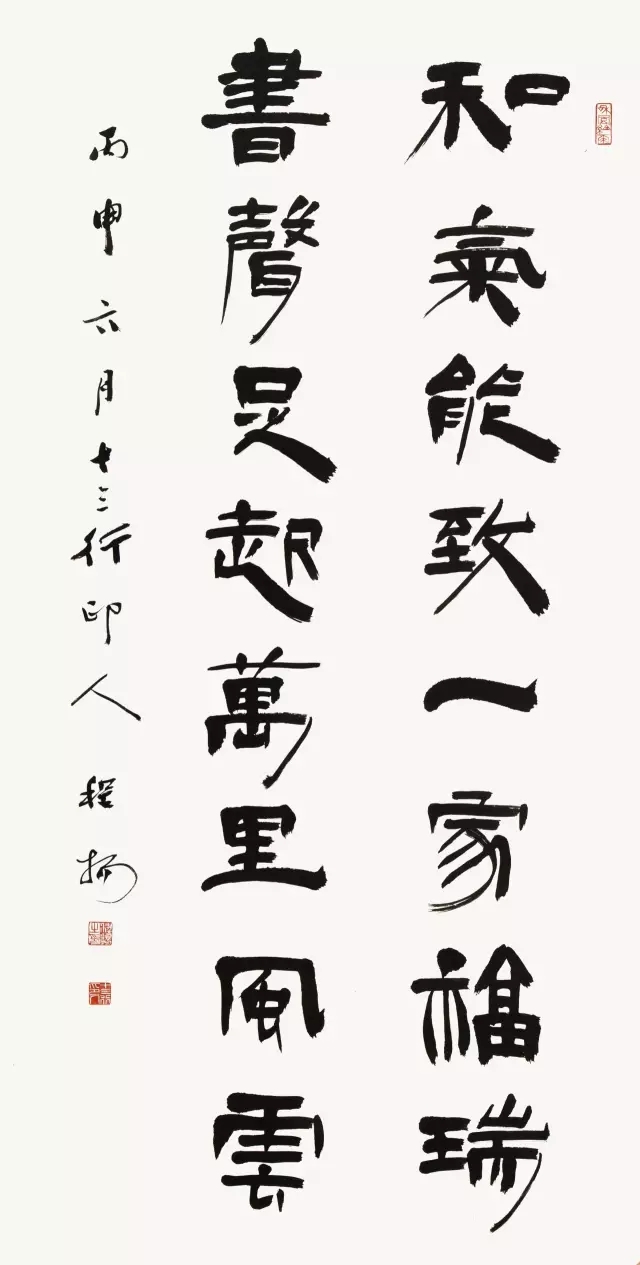 和氣能致一家福瑞
書聲足起萬里風雲
丙申六月十三行印人程揚